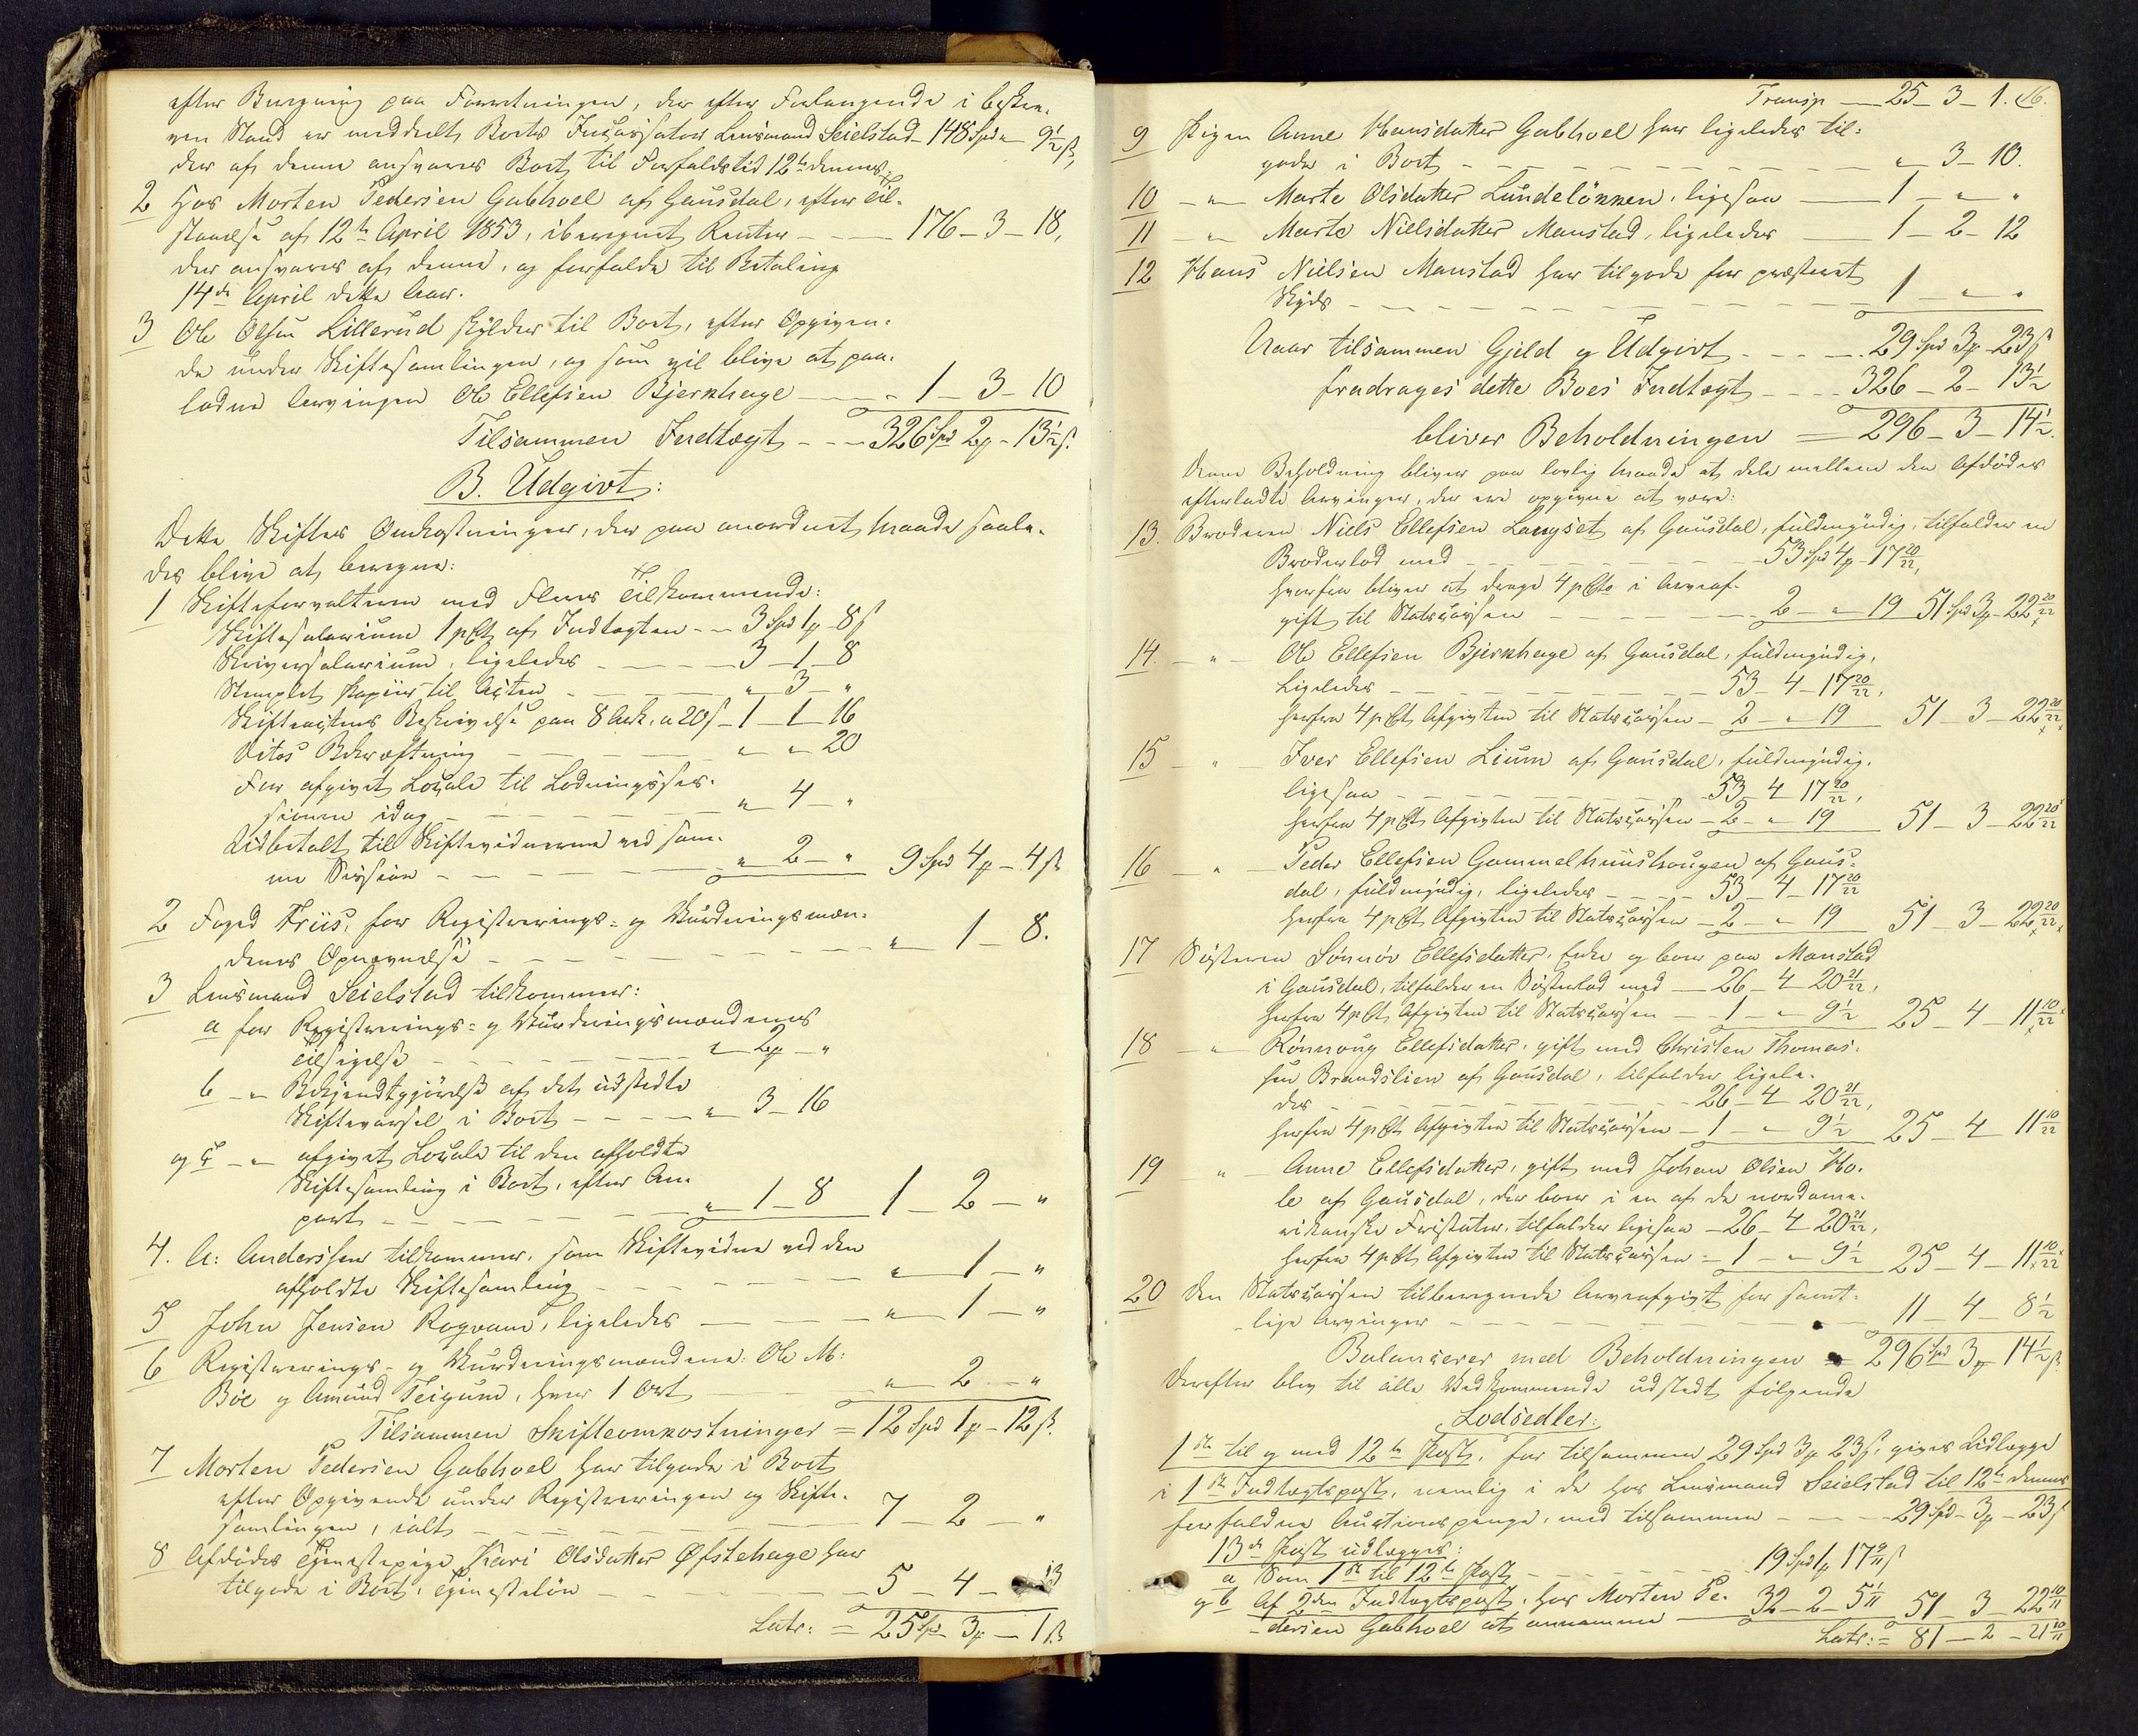 efter Beregning paa Forretningen, der efter Forlangende i beskre-
ven Stand er meddeelt Boets Incassator Lensmand Seielstad - 148 Spd " 9½ ß,
der af denne ansvares Boet til Forfaldstid 12te dennes.
2 Hos Morten Pedersen Gabhoel af Gausdal, efter Til-
staaelse af 12te April 1853, iberegnet Renter - 176 - 3 - 18,
der ansvares af denne, og forfalde til Betaling
14de April dette Aar.
3 Ole Olsen Lillerud skylder til Boet, efter Opgiven-
de under Skiftesamlingen, og som vil blive at paa-
lodne Arvingen Ole Ellefsen Bjerkhage - " 1 - 3 - 10
Tilsammen Indtægt - - 326 Spd 2 p - 13½ ß.
B. Udgivt:
Dette Skiftes Omkostninger, der paa anordnet Maade saale-
des blive at beregne:
1 Skifteforvalteren med Fleres Tilkommende:
Skiftesalarium 1 pCt af Indtægten - - 3 Spd 1 p 8 ß
Skriversalarium, ligeledes - 3 - 1 - 8
Stemplet Papiir til Acten - " 3 - "
Skifteactens Beskrivelse paa 8 Ark, a 20 ß - 1 - 1 - 16
Ditos Bekræftning - " " 20
For afgivet Locale til Lodningsses-
sionen idag - " 4 - "
Udbetalt til Skiftevidnerne ved sam-
me Session - " 2 - " 9 Spd 4 p - 4 ß
2 Foged Friis, for Registrerings- og Vurderingsmæn-
denes Opnævnelse - " 1 - 8.
3 Lensmand Seielstad tilkommer:
a for Registrerings- og Vurderingsmændenes
Tilsigelse - " 2 p - "
b - " Bekjendtgjørelse af det udstedte
Skiftevarsel i Boet - " 3 - 16
og c - " afgivet Locale til den afholdte
Skiftesamling i Boet, efter An-
part - " 1 - 8 1 - 2 - "
4. A: Anderssen tilkommer, som Skiftevidne ved den
afholdte Skiftesamling - " 1 - "
5 John Jensen Rogvam, ligeledes - " 1 - "
6 Registrerings- og Vurderingsmændene: Ole M:
Böe og Amund Teigum, hver 1 Ort - " 2 - "
Tilsammen Skifteomkostninger = 12 Spd 1 p - 12 ß.
7 Morten Pedersen Gabhoel har tilgode i Boet
efter Opgivende under Registreringen og Skifte-
samlingen, ialt - 7 - 2 - "
8 Afdødes Tjenestepige Kari Olsdatter Øfstehage har
tilgode i Boet, Tjenesteløn - 5 - 4 - 13
Latr: = 25 Spd 3 p - 1 ß
Transp - 25 - 3 - 1. ß.
9 Pigen Anne Hansdatter Gabhoel har ligeledes til-
gode i Boet - " 3 - 10.
10 - " - Marte Olsdatter Lundelökken, ligesaa - 1 - " "
11 - " Marte Nielsdatter Manstad, ligeledes - 1 - 2 - 12
12 Hans Nielsen Manstad har tilgode for præsteret
Skyds - 1 - " "
Naar tilsammen Gjeld og Udgivt - 29 Spd 3 p - 23 ß
fradrages dette Boes Indtægt - 326 - 2 - 13½
bliver Beholdningen = 296 - 3 - 14½.
Denne Beholdning bliver paa lovlig Maade at dele mellem den Afdødes
efterladte Arvinger, der ere opgivne at være:
13. Broderen Niels Ellefsen Langset af Gausdal, fuldmyndig, tilfalder en
Broderlod med - 53 Spd 4 p - 17 20/22,
hvorfra bliver at drage 4 pCto i Arveaf-
gift til Statscassen - 2 - " 19 51 Spd 3 p - 22 20/22
14. - " - Ole Ellefsen Bjerkhage af Gausdal, fuldmyndig,
ligeledes - 53 - 4 - 17 20/22,
herfra 4 pCt Afgivten til Statscassen - 2 - " 19 51 - 3 - 22 20/22
15 - " - Iver Ellefsen Lium af Gausdal, fuldmyndig,
ligesaa - 53 - 4 17 20/22,
herfra 4 pCt Afgivten til Statscassen - 2 - " 19 51 - 3 - 22 20/22
16 - " - Peder Ellefsen Gammelhuushougen af Gaus-
dal, fuldmyndig, ligeledes - 53 - 4 - 17 20/22
herfra 4 pCt Afgivten til Statscassen - 2 - " 19 51 - 3 - 22 20/22
17 Søsteren Sönnöv Ellefsdatter, Enke og boer paa Manstad
i Gausdal, tilfalder en Søsterlod med - 26 - 4 20 21/22,
herfra 4 pCt, Afgivten til Statscassen - 1 - " 9½ 25 - 4 - 11 10/22
18 - " - Rönnoug Ellefsdatter, gift med Christen Thomas-
sen Brandslien af Gausdal, tilfalder ligele-
des - 26 - 4 20 21/22,
herfra 4 pCt Afgivten til Statscassen - 1 - " 9½ 25 - 4 11 10/22
19 - " - Anne Ellefsdatter, gift med Johan Olsen Ho-
le af Gausdal, der boer i en af de nordame-
rikanske Fristater, tilfalder ligesaa - 26 - 4 20 21/22,
herfra 4 pCt Afgivten til Statscassen - 1 - " 9½ 25 - 4 - 11 10/22
20 Den Statscassen tilberegnede Arveafgivt for samt-
lige Arvinger - 11 - 4 8½
Balancerer med Beholdningen = 296 Spd 3 p 14½ ß.
Derefter blev til alle Vedkommende udstedt følgende
Lodsedler:
1ste til og med 12te Post, for tilsammen 29 Spd 3 p 23 ß, gives Udlægge
i 1ste Indtægtspost, nemlig i de hos Lensmand Seielstad til 12te dennes
forfaldne Auctionspenge, med tilsammen - 29 Spd - 3 p - 23 ß
13de Post udlægges:
a Som 1ste til 12te Post - 19 Spd 1 p 17 9/11 ß
og b Af 2den Indtægtspost, hos Morten Pe-
dersen Gabhoel at annamme - 32 - 2 - 5 1/11 51 - 3 - 22 10/11
Latr: = 81 - 2 - 21 10/11